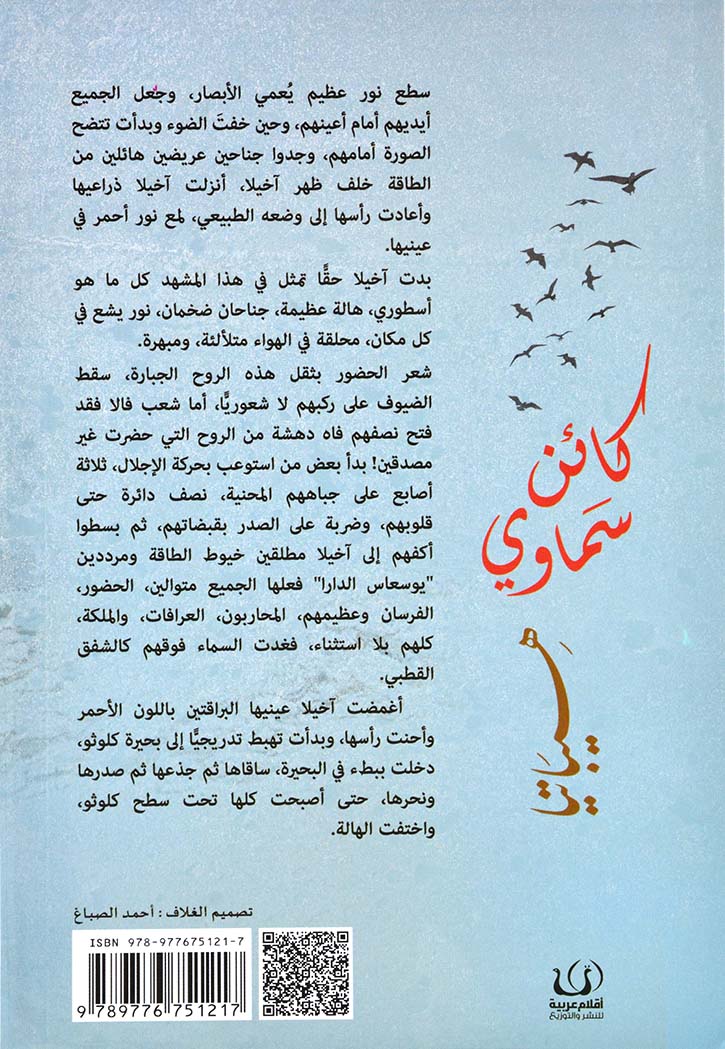 سطع نور عظيم يُعمي الأبصار، وجعل الجميع
أيديهم أمام أعينهم، وحين خفتَ الضوء وبدأت تتضح
الصورة أمامهم، وجدوا جناحين عريضين هائلين من
الطاقة خلف ظهر آخيلا، أنزلت آخيلا ذراعيها
وأعادت رأسها إلى وضعه الطبيعي، لمع نور أحمر في
عينيها.
بدت آخيلا حقًّا تمثل في هذا المشهد كل ما هو
أسطوري، هالة عظيمة، جناحان ضخمان، نور يشع في
كل مكان، محلقة في الهواء متلألئة، ومبهرة.
شعر الحضور بثقل هذه الروح الجبارة، سقط
الضيوف على ركبهم لا شعوريًّا، أما شعب فالا فقد
فتح نصفهم فاه دهشة من الروح التي حضرت غير
مصدقين! بدأ بعض من استوعب بحركة الإجلال، ثلاثة
أصابع على جباههم المحنية، نصف دائرة حتى
قلوبهم، وضربة على الصدر بقبضاتهم، ثم بسطوا
أكفهم إلى آخيلا مطلقين خيوط الطاقة ومرددين
"يوسعاس الدارا" فعلها الجميع متوالين، الحضور،
الفرسان وعظيمهم، المحاربون، العرافات، والملكة،
كلهم بلا استثناء، فغدت السماء فوقهم كالشفق
القطبي.
أغمضت آخيلا عينيها البراقتين باللون الأحمر
وأحنت رأسها، وبدأت تهبط تدريجيًّا إلى بحيرة كلوثو،
دخلت ببطء في البحيرة، ساقاها ثم جذعها ثم صدرها
ونحرها، حتى أصبحت كلها تحت سطح كلوثو،
واختفت الهالة.
كائن
سَماوي
هيباتيا
تصميم الغلاف : أحمد الصباغ
ISBN 978-977675121-7
9 789776 751217
أقلام عربية
للنشر والتوزيع